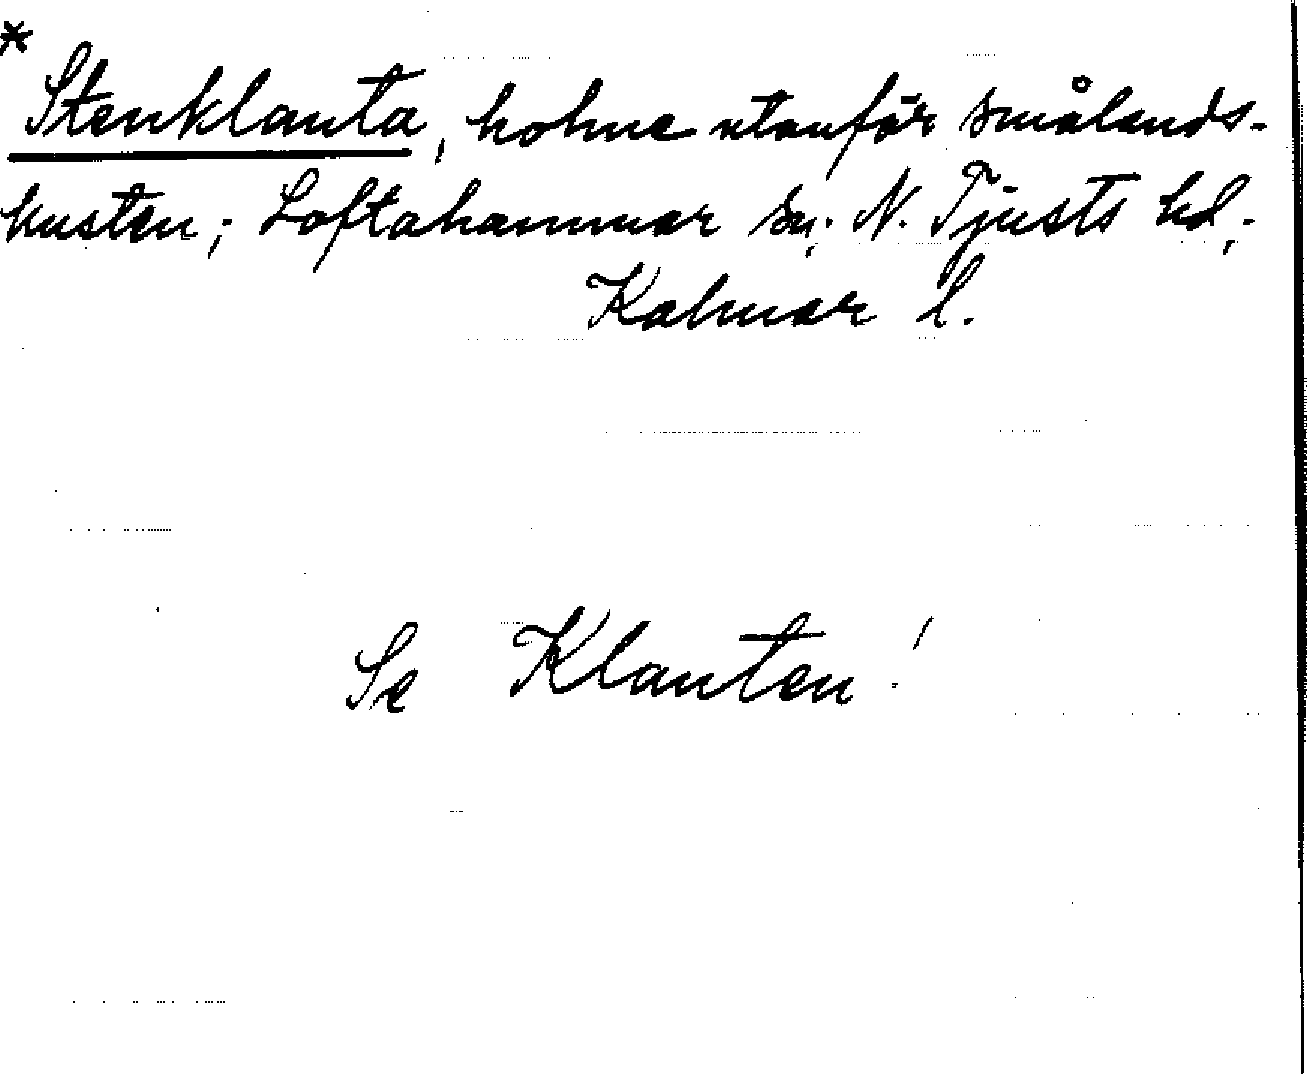 * Stenklanta, holme utanför smålands-
kusten; Loftahammar sn; N. Tjusts hd,
Kalmar l.
Se Klanten!